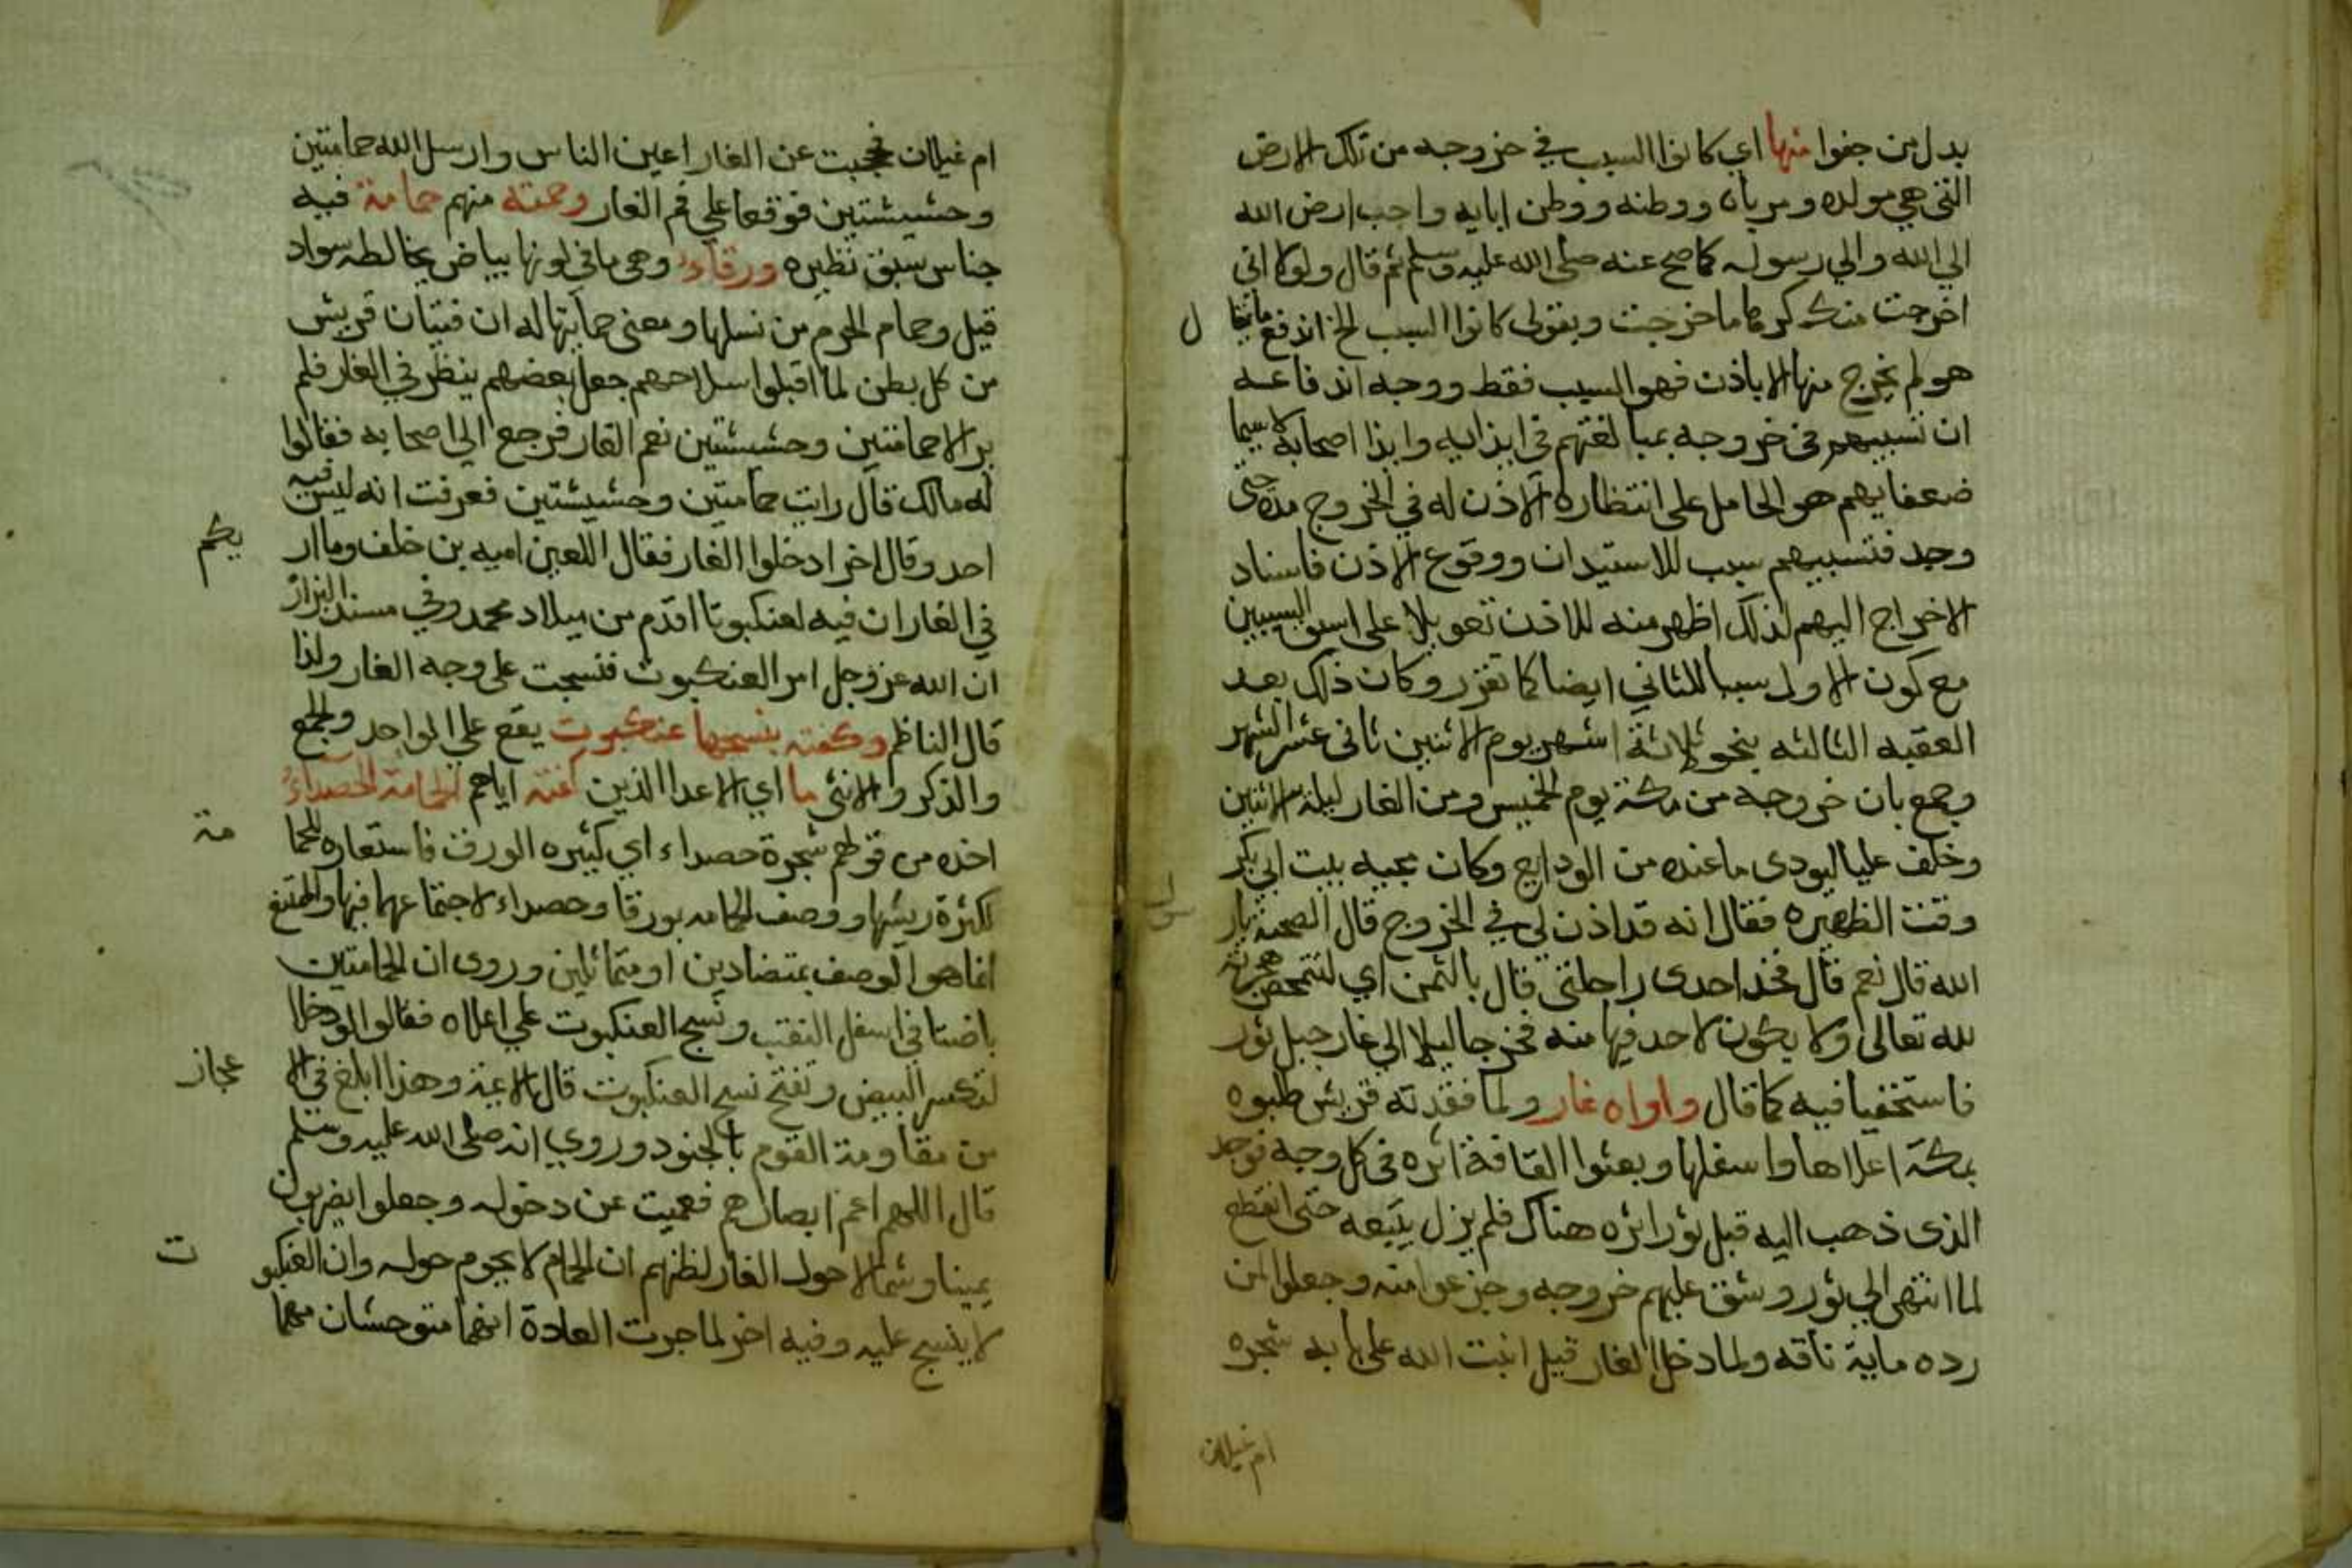 بدل من جفوا منها اي كانوا السبب في خروجه من تلك الارض
التي هي مولده ومرباه ووطنه ووطن ابايه واحب ارض الله
الي الله والي رسوله كما صح عنه صلي الله عليه وسلم ثم قال ولولا اني
اخرجت منك كرها ما خرجت وبقولي كانوا السبب الخ اندفع ما يقا
ل
هو لم يخرج منها الا باذن فهو السبب فقط ووجه اندفاعه
ان تسببهم في خروجه بمبالغتهم في ايذايه وايذا اصحابه لا سيما
ضعفايهم هو الحامل علي انتظاره الاذن له في الخروج منه حتي
وجد فتسببهم سبب للاستيدان ووقوع الاذن فاسناد
الاخراج اليهم لذلك اظهر منه للاذن تعويلا علي اسبق السببين
مع كون الاول سببا للثاني ايضا كما تقرر وكان ذلك بعد
العقبه الثالثه بنحو ثلاثة اشهر يوم الاثنين ثاني عشر الشهر
وجمع بان خروجه من مكة يوم الخميس ومن الغار ليلة الاثنين
وخلف عليا ليودي ما عنده من الودايع وكان مجيه بيت ابي بكر
وقت الظهيره فقال انه قد اذن لي في الخروج قال الصحبة يار
سول
الله قال نعم قال فخذ احدي راحلتي قال بالثمن اي لتتمحض هجرته
لله تعالي ولا يكون لاحد فيها منه فخرجا ليلا الي غار جبل ثور
فاستخفيا فيه كما قال واواه غار ولما فقدته قريش طلبوه
بمكة اعلاها واسفلها وبعثوا القافة اثره في كل وجه فوجد
الذي ذهب اليه قبل ثور اثره هناك فلم يزل يتبعه حتي انقطع
لما انتهي الي ثور وشق عليهم خروجه وجزعوا منه وجعلوا لمن
رده ماية ناقه ولما دخل الغار قيل انبت الله علي بابه شجره
ام غيلان
ام غيلان فحجبت عن الغار اعين الناس وارسل الله حمامتين
وحشيشتين فوقعا علي فم الغار وحمته منهم حمامة فيه
جناس سبق نظيره ورقاء وهي ما في لونها بياض يخالطه سواد
قيل وحمام الحرم من نسلها ومعني حمايتها له ان فتيان قريش
من كل بطن لما اقبلوا بسلاحهم جعل بعضهم ينظر في الغار فلم
ير الا حمامتين وحشيشتين نعم الغار فرجع الي اصحابه فقالوا
له مالك قال رايت حمامتين وحشيشتين فعرفت انه ليس فيه
احد وقال اخر ادخلوا الغار فقال اللعين اميه بن خلف وما ار
بكم
في الغار ان فيه لعنكبوتا اقدم من ميلاد محمد وفي مسند البزار
ان الله عز وجل امر العنكبوت فنسجت علي وجه الغار ولذا
قال الناظم وكفته بنسجها عنكبوت يقع علي الواحد والجمع
والذكر والانثي ما اي الاعدا الذين كفته اياهم الحمامة الحصداء
اخذه من قولهم شجرة حصداء اي كثيره الورق فاستعاره للحما
مة
لكثرة ريشها ووصف الحمامه بورقا وحصداء لاجتماعهما فيها والممتنع
انما هو الوصف بمتضادين او متماثلين وروي ان الحمامتين
باضتا في اسفل النقب ونسج العنكبوت علي اعلاه فقالوا لو دخلا
لتكسر البيض وتفتح نسج العنكبوت قال الاعنة وهذا ابلغ في الا
عجاز
من مقاومة القوم بالجنود وروي انه صلي الله عليه وسلم
قال اللهم اعم ابصارهم فعميت عن دخوله وجعلوا يضربون
يمينا وشمالا حول الغار لظنهم ان الحمام لا يحوم حوله وان العنكبو
ت
لا ينسج عليه وفيه اخر لما جرت العادة انهما متوحشان مهما